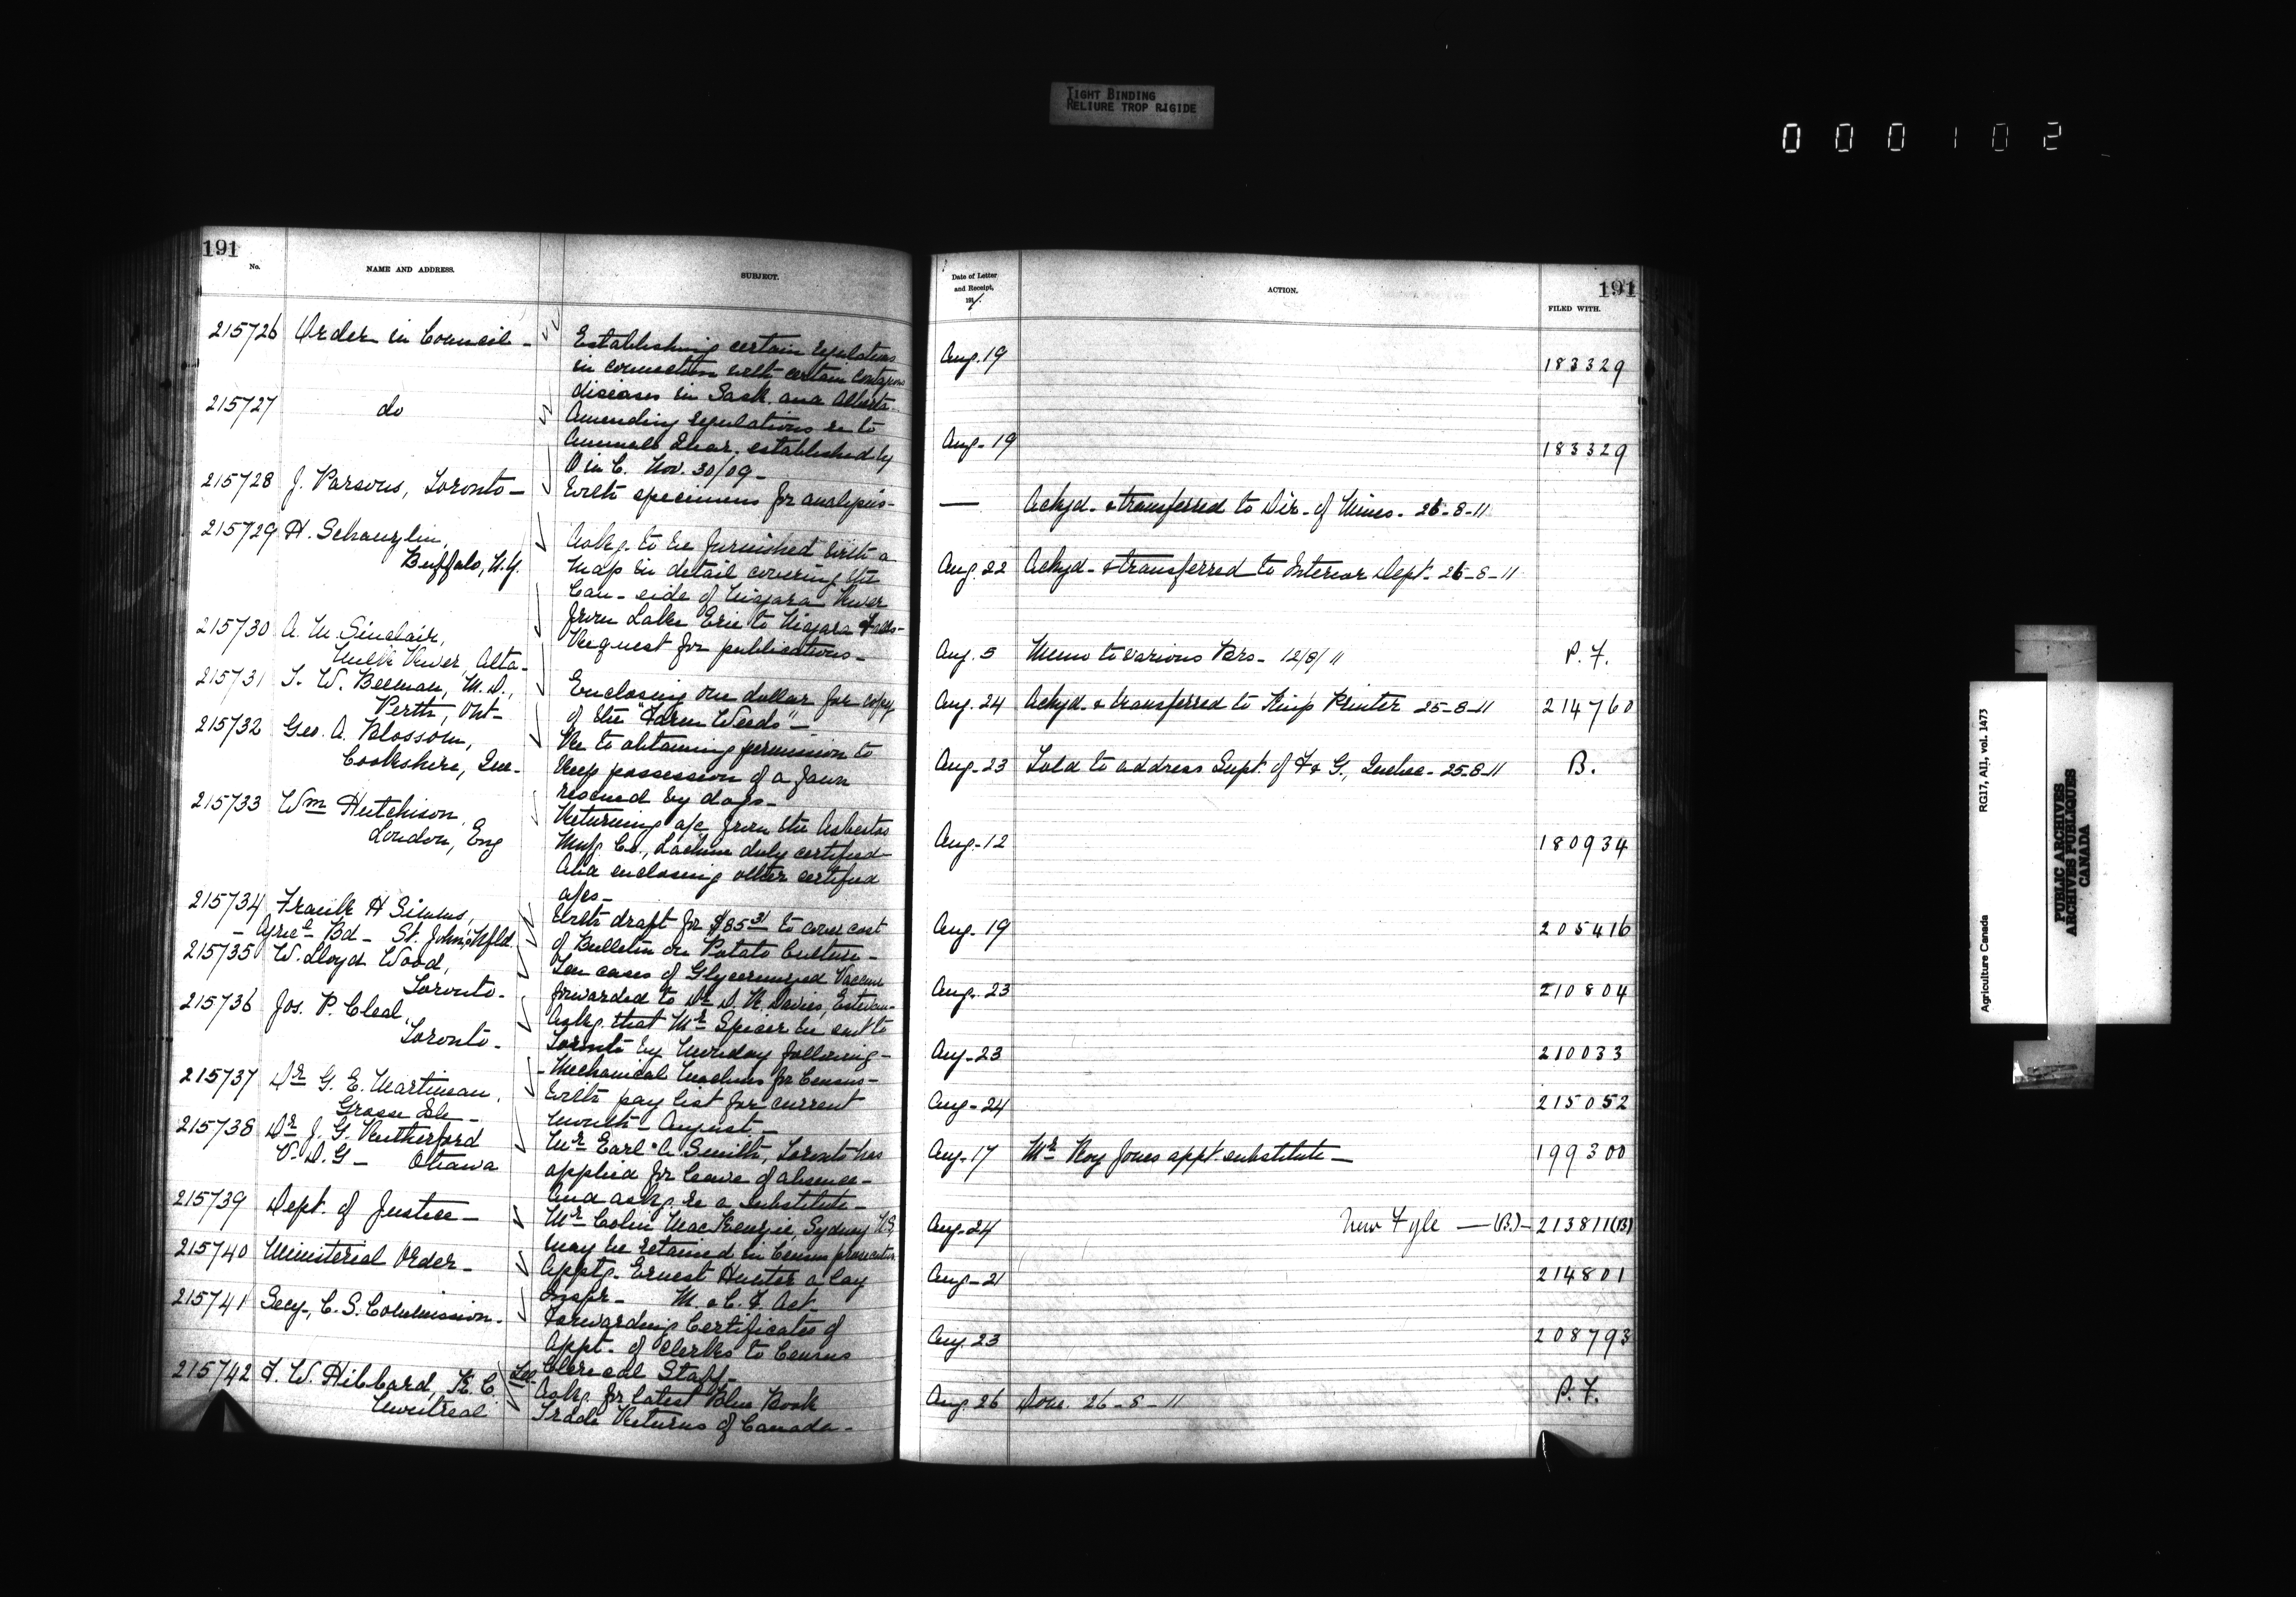 TIGHT BINDING
RELIURE TROP RIGIDE
000102
191
No.
NAME AND ADDRESS.
SUBJECT.
215726 Order in Council -
Establishing certain regulations
in connection with certain contagious
diseases in Sask. and Alberta -
215727 do
Amending regulations re to
animals Quar. established by
O in C. Nov. 30/09 -
215728 J. Parsons, Toronto -
With specimens for analysis -
215729 H. Schanzlin,
Buffalo, N.Y.
Askg. to be furnished with a
map in detail covering the
Can - side of Niagara River
from Lake Erie to Niagara Falls -
215730 A. M. Sinclair,
Milk River, Alta -
Request for publications -
215731 T. W. Beeman, M.D.,
Perth, Ont -
Enclosing one dollar for copy
of the "Farm Weeds" -
215732 Geo. A. Blossom,
Cookshire, Que -
Re to obtaining permission to
keep possession of a fawn
rescued by dogs -
215733 Wm Hutchison,
London, Eng
Returning a/c from the Asbestos
Mnfg Co., Lachine duly certified
Also enclosing other certified
a/cs -
215734 Frank H Simms,
- Agricl Bd - St. John's, Nfld.
With draft for $85 31 to cover cost
of Bulletin on Potato Culture -
215735 W. Lloyd Wood,
Toronto -
Ten cases of Glycerinized Vaccine
forwarded to Dr D. R. Davies, Estevan -
215736 Jos. P. Cleal,
Toronto -
Askg. that Mr Spicer be sent to
Toronto by Monday following -
- Mechanical Machines for Census -
215737 Dr G. E. Martineau,
Grosse Isle -
With pay list for current
month - August -
215738 Dr J. G. Rutherford
V.D.G - Ottawa
Mr Earl A Smith, Toronto has
applied for leave of absence -
And askg re a substitute -
215739 Dept. of Justice -
Mr Colin MacKenzie, Sydney N.S,
may be retained in Census prosecution
215740 Ministerial Order -
Apptg. Ernest Hunter a lay
Inspr - M. & C. F. Act -
215741 Secy, C. S. Commission -
Forwarding Certificates of
Appt. of Clerks to Census
Clerical Staff -
215742 F. W. Hibbard, K.C.
Montreal
Askg. for latest Blue Book
Trade Returns of Canada -
Date of Letter
and Receipt,
191 1.
ACTION.
191
FILED WITH.
Aug. 19 183329
Aug - 19 183329
— Ackgd - & transferred to Dir - of Mines - 26-8-11
Aug. 22 Ackgd - & transferred to Interior Dept - 26-8-11
Aug. 5 Memo to various Brs - 12/8/11 P. F.
Aug. 24 Ackgd. & transferred to King's Printer 25-8-11 214760
Aug - 23 Told to address Supt. of F & G., Quebec - 25-8-11 B.
Aug - 12 180934
Aug - 19 205416
Aug. 23 210804
Aug - 23 210033
Aug - 24 215052
Aug - 17 Mr Roy Jones appt. substitute - 199300
Aug - 24 New Fyle — (B.) - 213811(B)
Aug - 21 214801
Aug. 23 208793
Aug. 26 Done. 26-8-11 P. F.
Agriculture Canada RG17, AII, vol. 1473
PUBLIC ARCHIVES
ARCHIVES PUBLIQUES
CANADA